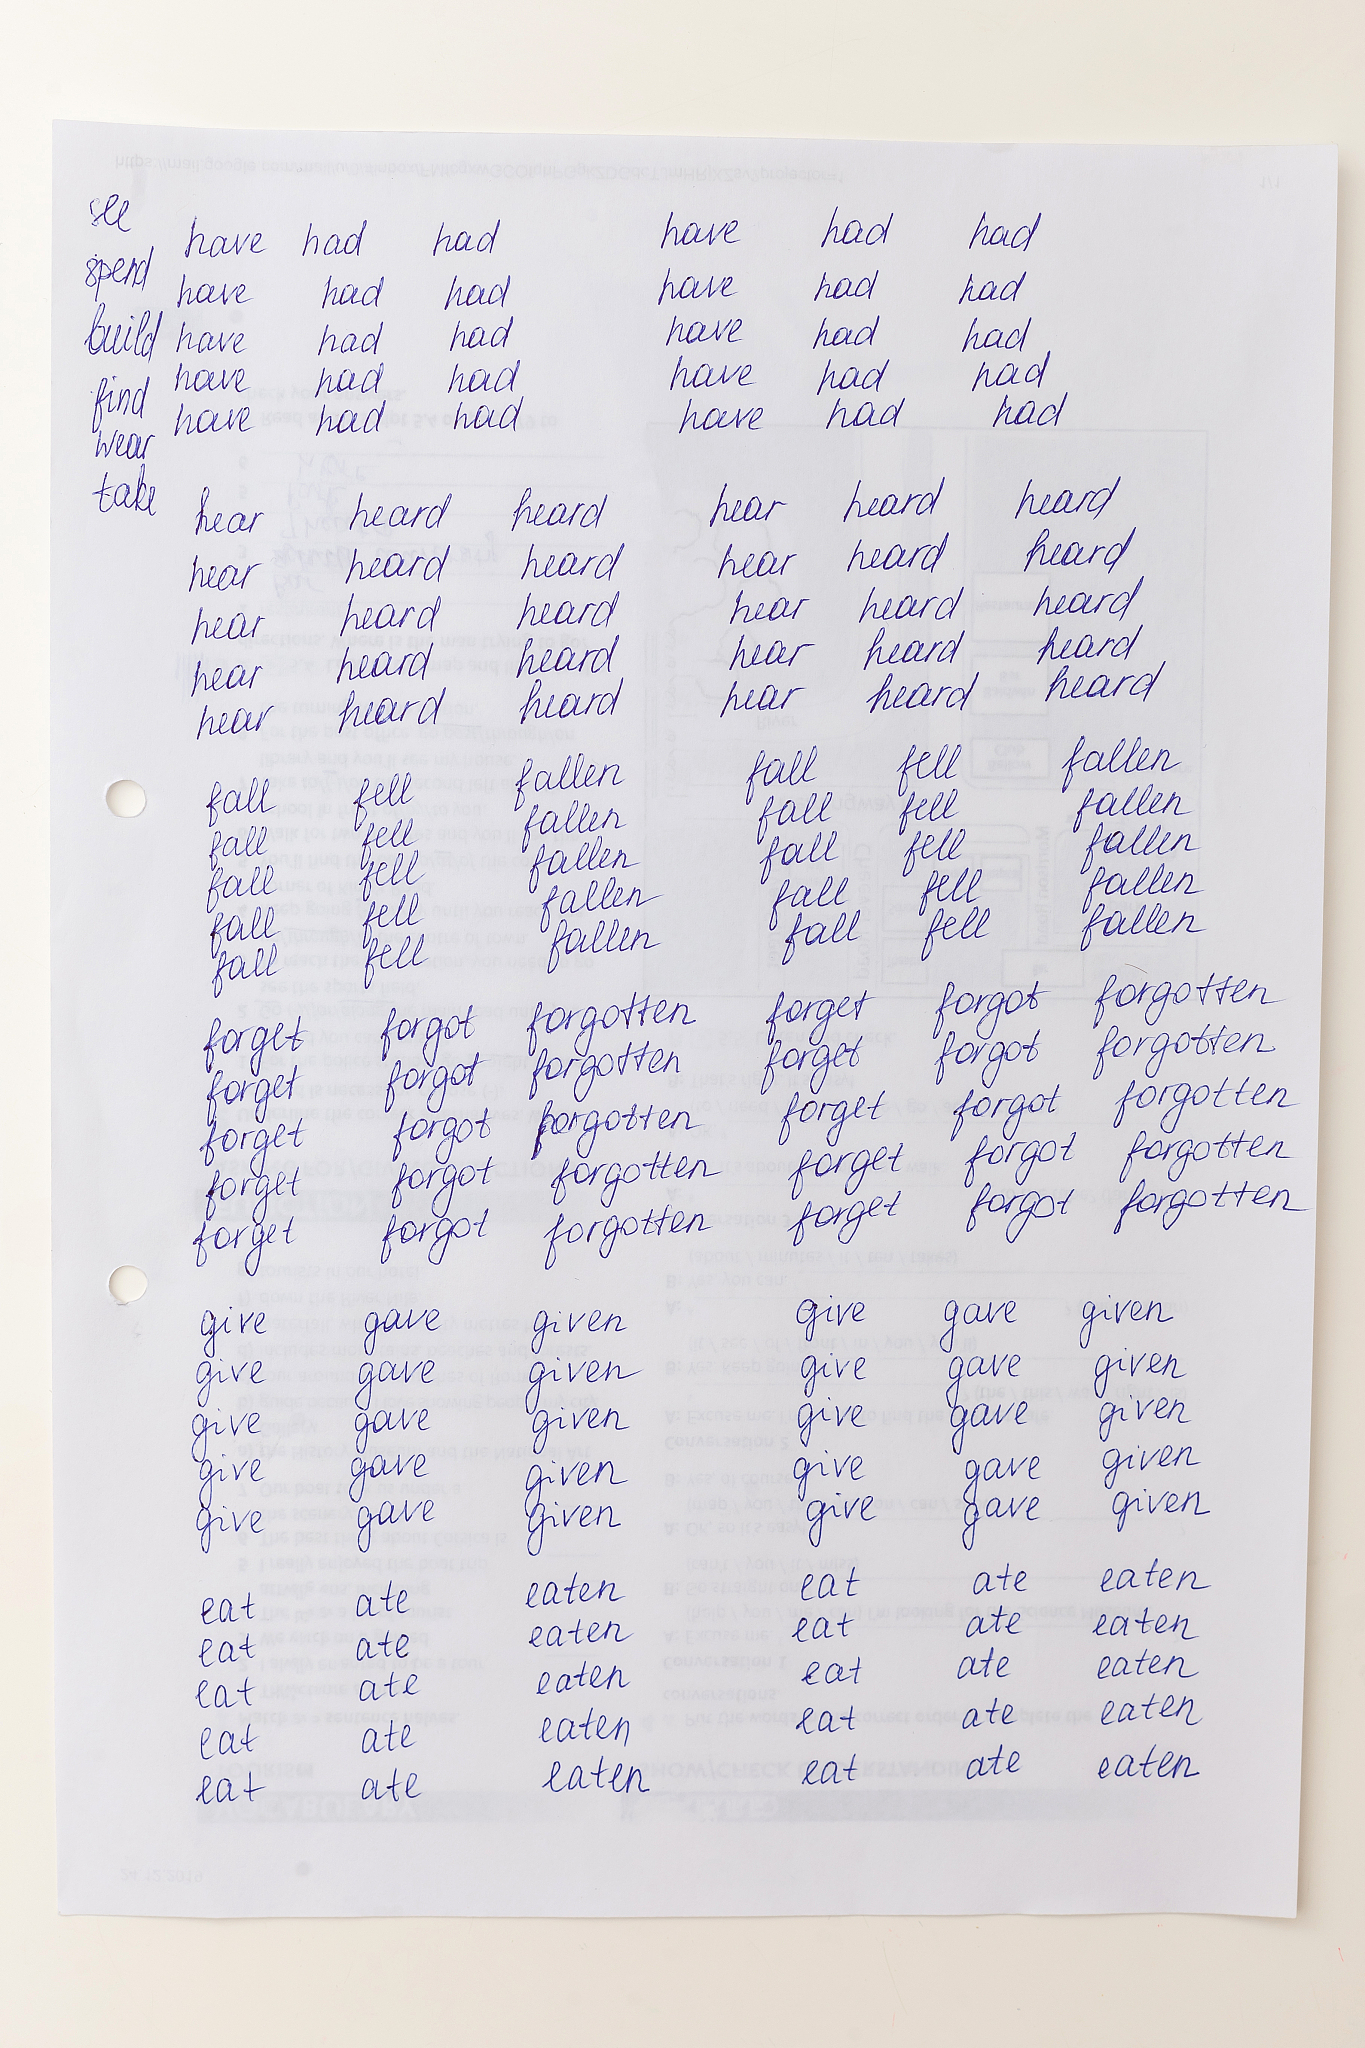 see
spend
build
find
wear
take
have had had have had had
have had had have had had
have had had have had had
have had had have had had
have had had have had had
hear heard heard hear heard heard
hear heard heard hear heard heard
hear heard heard hear heard heard
hear heard heard hear heard heard
hear heard heard hear heard heard
fall fell fallen fall fell fallen
fall fell fallen fall fell fallen
fall fell fallen fall fell fallen
fall fell fallen fall fell fallen
fall fell fallen fall fell fallen
forget forgot forgotten forget forgot forgotten
forget forgot forgotten forget forgot forgotten
forget forgot forgotten forget forgot forgotten
forget forgot forgotten forget forgot forgotten
forget forgot forgotten forget forgot forgotten
give gave given give gave given
give gave given give gave given
give gave given give gave given
give gave given give gave given
give gave given give gave given
eat ate eaten eat ate eaten
eat ate eaten eat ate eaten
eat ate eaten eat ate eaten
eat ate eaten eat ate eaten
eat ate eaten eat ate eaten